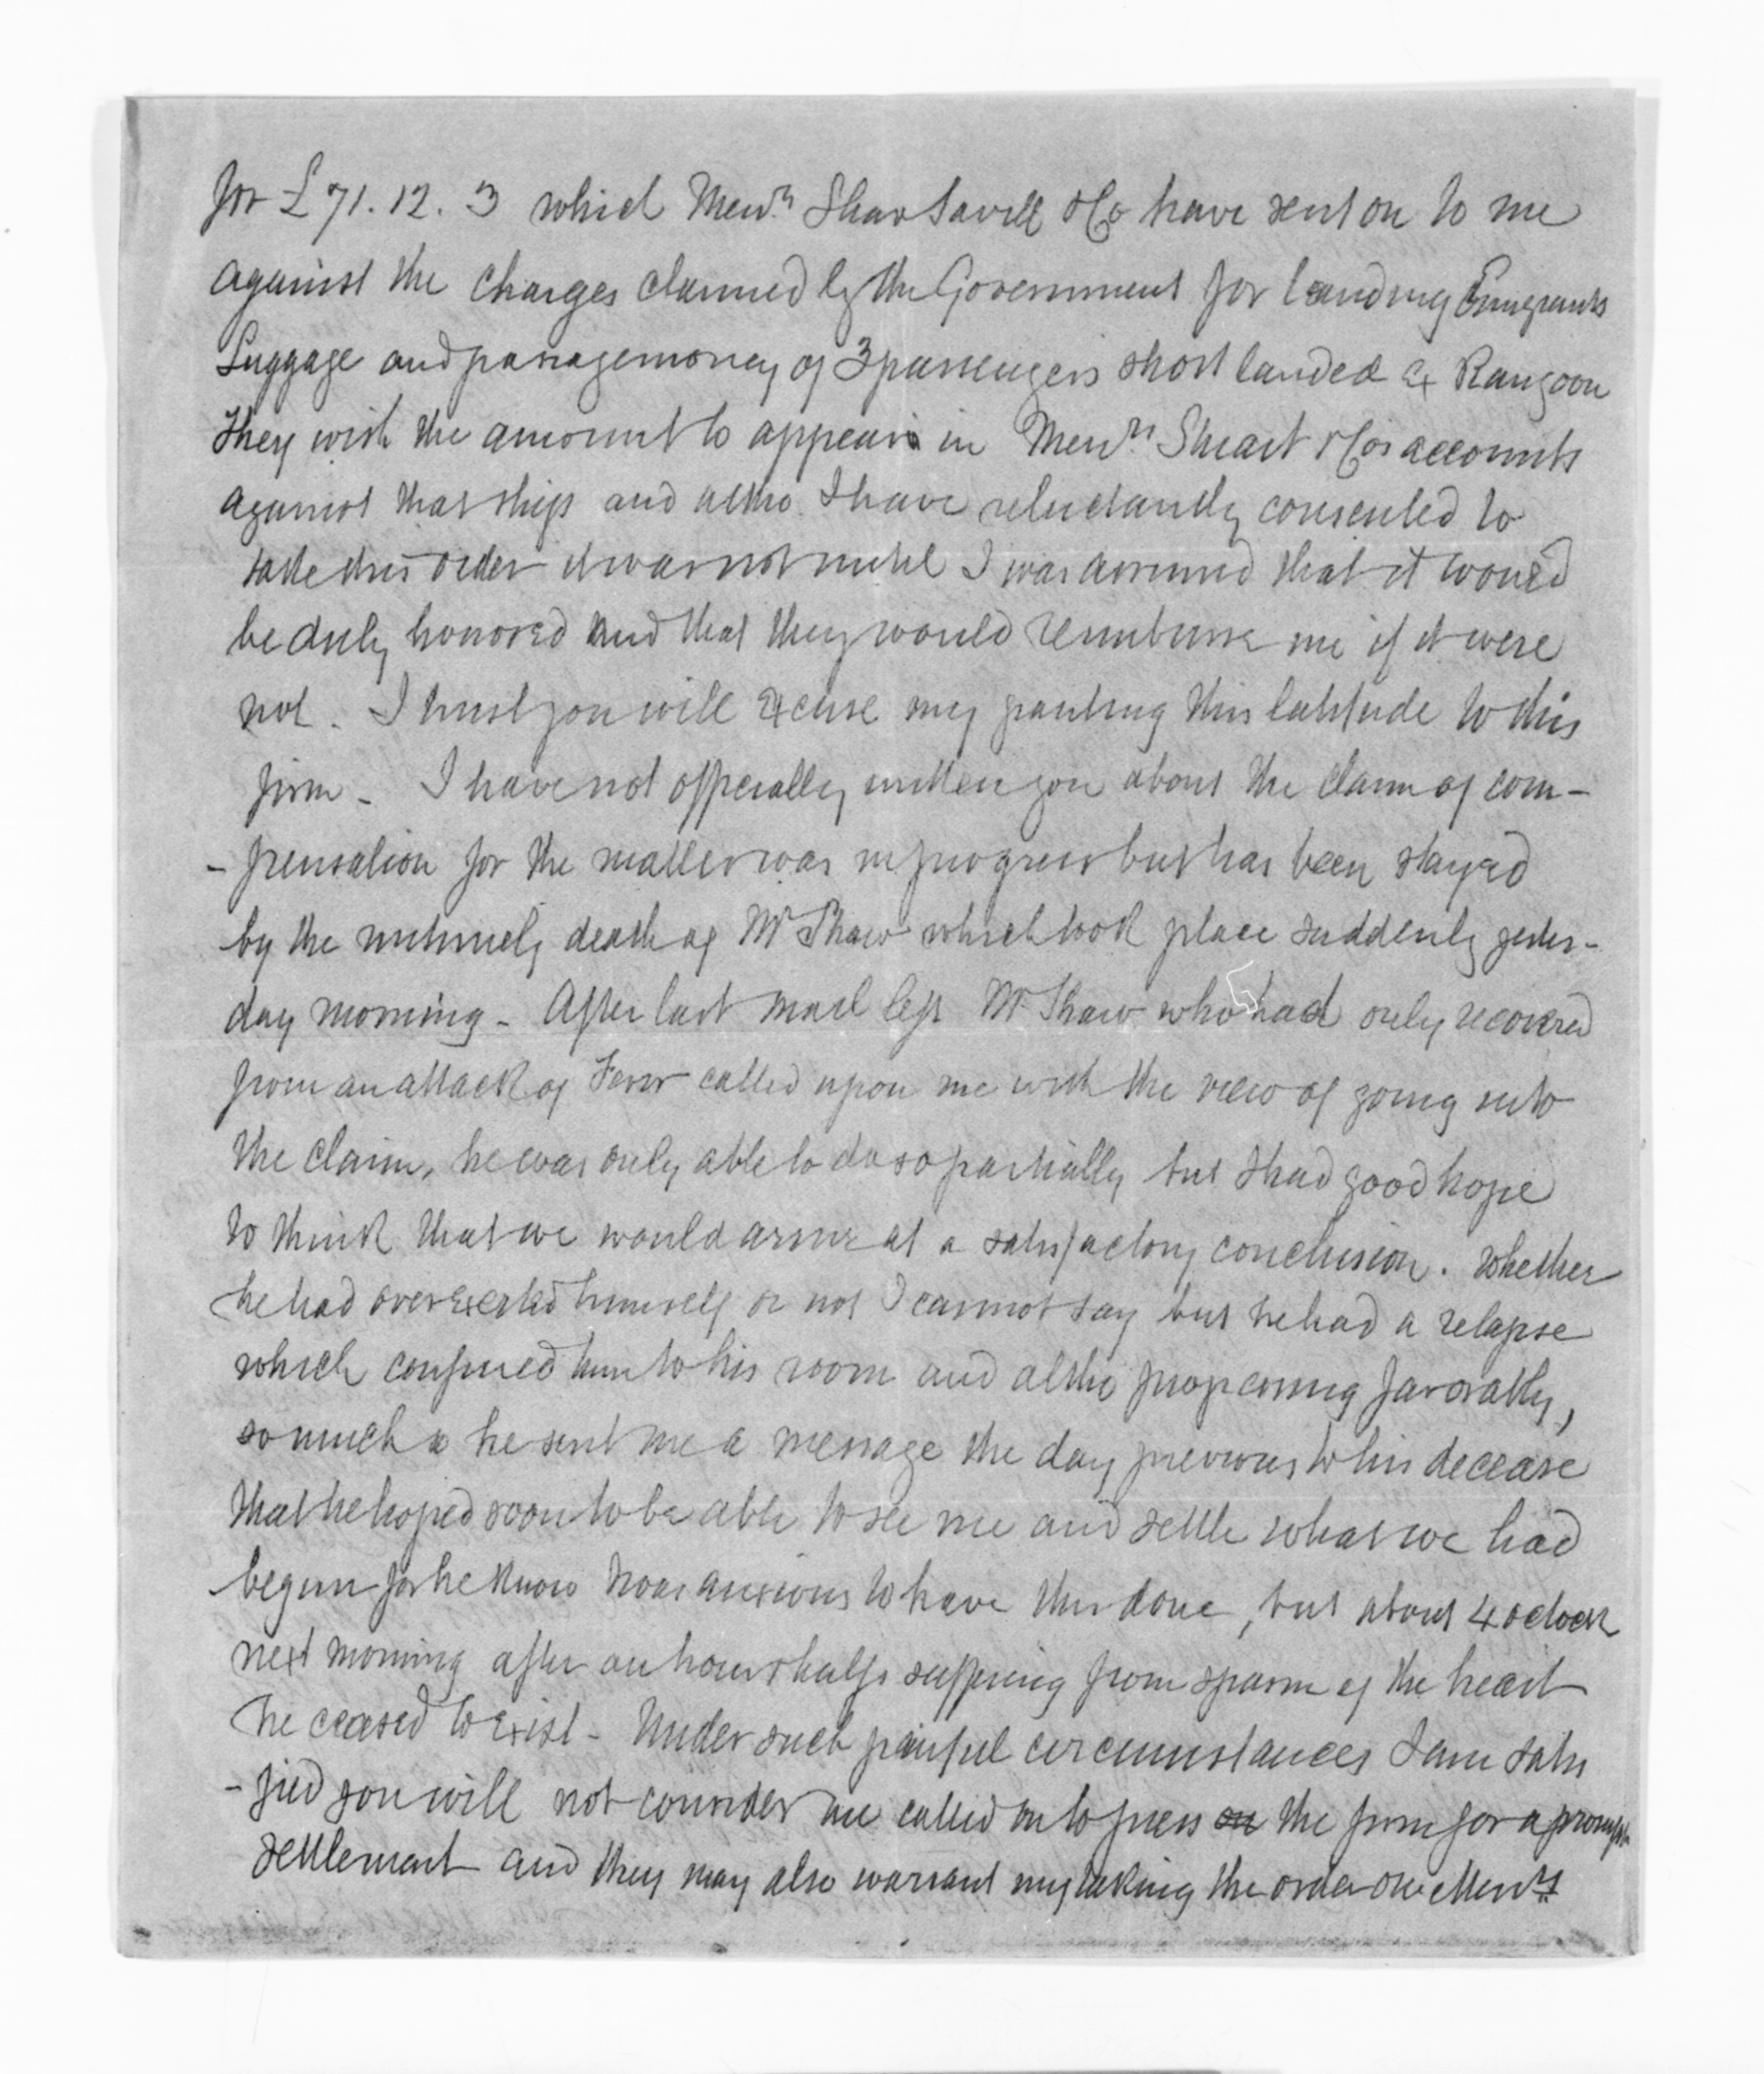 for £71.12.3 which Messrs Shaw Savill & Co have sent on to me
against the charges claimed by the Government for landing Emigrants
Luggage and passage money of 3 passengers short landed ex Rangoon
They wish the amount to appear in Messrs Stuart & Co's accounts
against that ship and altho I have reluctantly consented to
take this order it was not until I was assured that it would
be duly honored and that they would reimburse me if it were
not. I trust you will excuse my granting this latitude to this
firm - I have not officially written you about the claim of com-
-pensation for the matter was in progress but has been stayed
by the untimely death of Mr Shaw which took place suddenly yester-
day morning - After last mail left Mr Shaw who had only recovered
from an attack of Fever called upon me with the view of going into
the claim, he was only able to do so partially but I had good hope
to think that we would arrive at a satisfactory conclusion. Whether
he had over exerted himself or not I cannot say but he had a relapse
which confined him to his room and altho progressing favorably,
so much so he sent me a message the day previous to his decease
that he hoped soon to be able to see me and settle what we had
begun for he knew I was anxious to have this done, but about 4 oclock
next morning after an hour & half's suffering from spasm of the heart
he ceased to exist - Under such painful circumstances I am satis
-fied you will not consider me called on to press on the firm for a prompt
settlement and they may also warrant my taking the order on Messrs